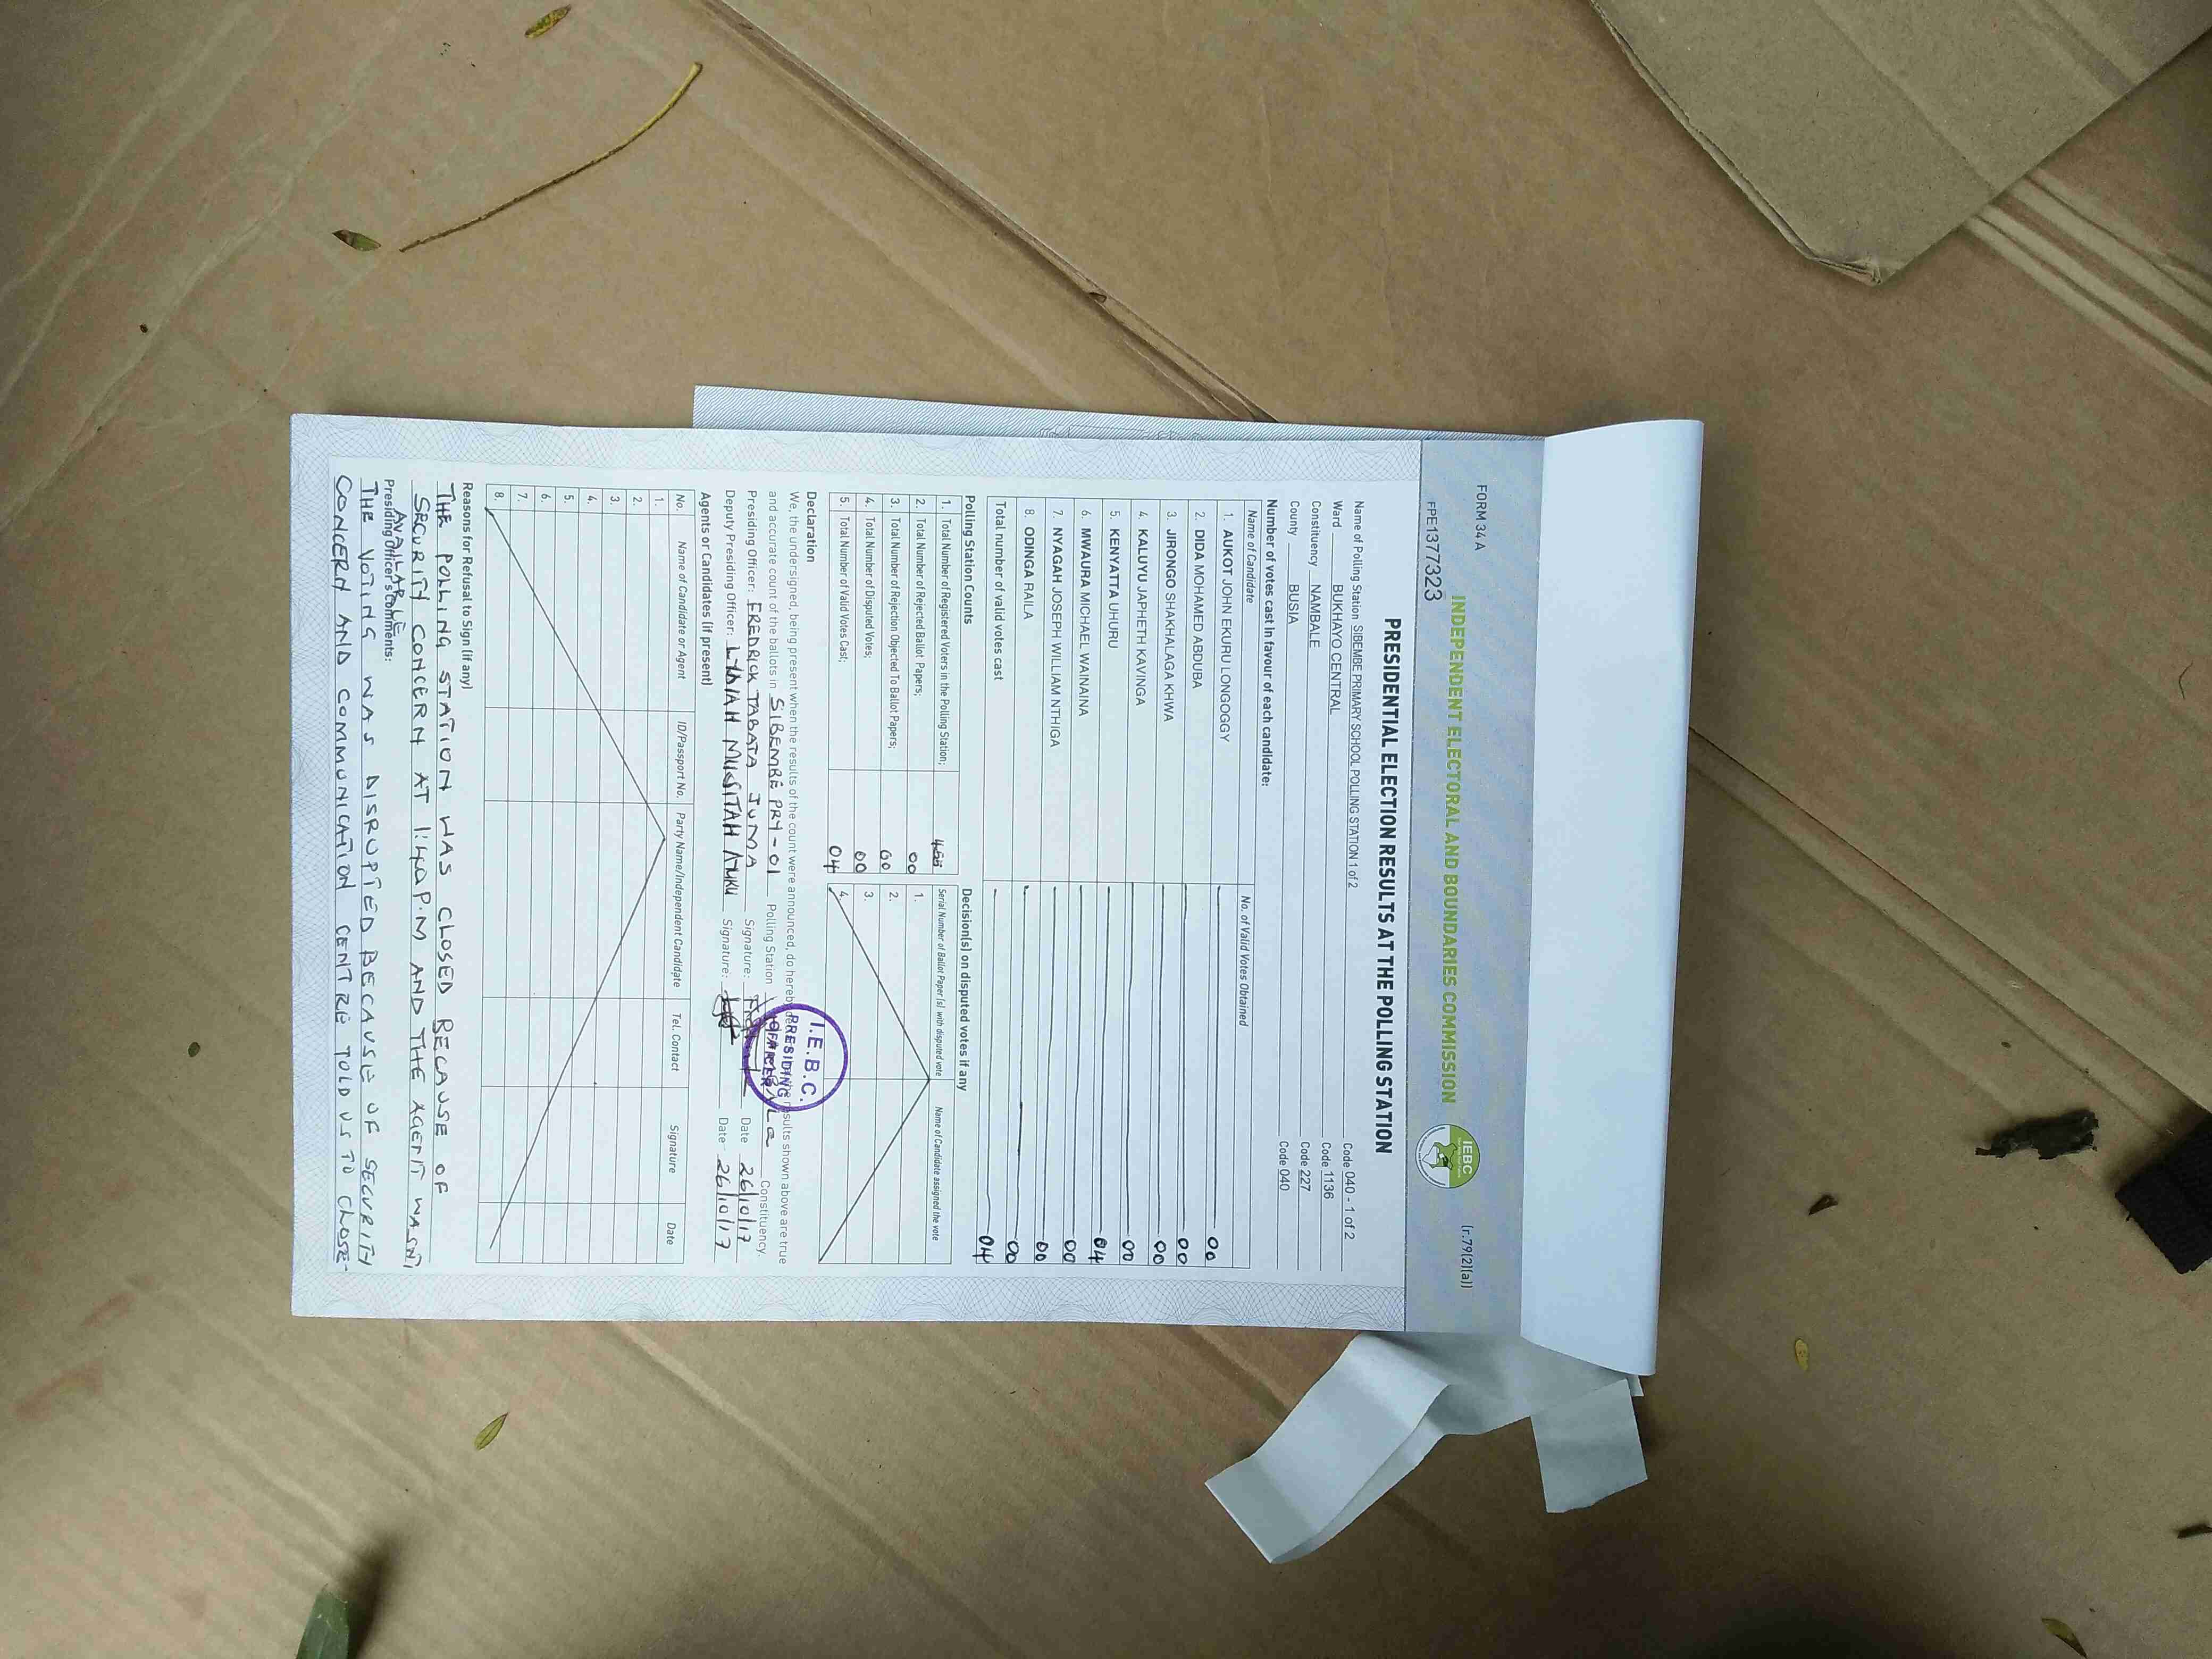 FORM 34 A
(r.79(2)(a))
FPE1377323
INDEPENDENT ELECTORAL AND BOUNDARIES COMMISSION
IEBC
PRESIDENTIAL ELECTION RESULTS AT THE POLLING STATION
Name of Polling Station SIBEMBE PRIMARY SCHOOL POLLING STATION 1 of 2 Code 040 - 1 of 2
Ward BUKHAYO CENTRAL Code 1136
Constituency NAMBALE Code 227
County BUSIA Code 040
Number of votes cast in favour of each candidate:
Name of Candidate No. of Valid Votes Obtained
1. AUKOT JOHN EKURU LONGOGGY 00
2. DIDA MOHAMED ABDUBA 00
3. JIRONGO SHAKHALAGA KHWA 00
4. KALUYU JAPHETH KAVINGA 00
5. KENYATTA UHURU 04
6. MWAURA MICHAEL WAINAINA 00
7. NYAGAH JOSEPH WILLIAM NTHIGA 00
8. ODINGA RAILA 00
Total number of valid votes cast 04
Polling Station Counts
1. Total Number of Registered Voters in the Polling Station;
2. Total Number of Rejected Ballot Papers; 00
3. Total Number of Rejection Objected To Ballot Papers; 00
4. Total Number of Disputed Votes; 00
5. Total Number of Valid Votes Cast; 04
Decision(s) on disputed votes if any
Serial Number of Ballot Paper (s) with disputed vote Name of Candidate assigned the vote
1.
2.
3.
4.
Declaration
We, the undersigned, being present when the results of the count were announced, do hereby results shown above are true
and accurate count of the ballots in SIBEMBE PRY-01 Polling Station Constituency.
Presiding Officer: FREDRICK TABATA JUMA Signature: Date 26/10/17
Deputy Presiding Officer: LYDIAH Signature: Date 26/10/17
I.E.B.C.
PRESIDING
OFFICER
Agents or Candidates (if present)
No. Name of Candidate or Agent ID/Passport No. Party Name/Independent Candidate Tel. Contact Signature Date
1.
2.
3.
4.
5.
6.
7.
8.
Reasons for Refusal to Sign (if any)
THE POLLING STATION WAS CLOSED BECAUSE OF
SECURITY CONCERN AT P.M AND THE AGENT WASNT
AVAILABLE
Presiding Officer's comments:
THE VOTING WAS DISRUPTED BECAUSE OF SECURITY
CONCERN AND COMMUNICATION CENTRE TOLD US TO CLOSE-